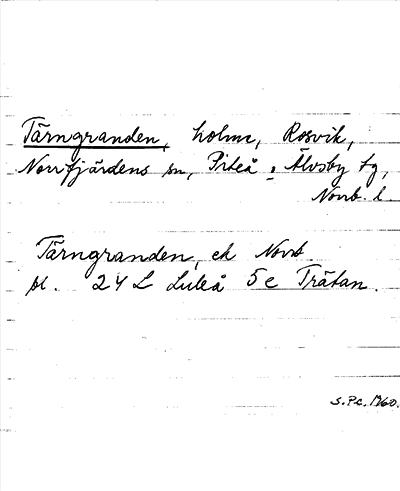 Tärngranden, holme, Rosvik,
Norrfjärdens sn, Piteå o Älvsby tg,
Norrb. l.
Tärngranden, ek Norrb
bl. 24 L Luleå 5 c Trätan.
S.Pc. 1960.